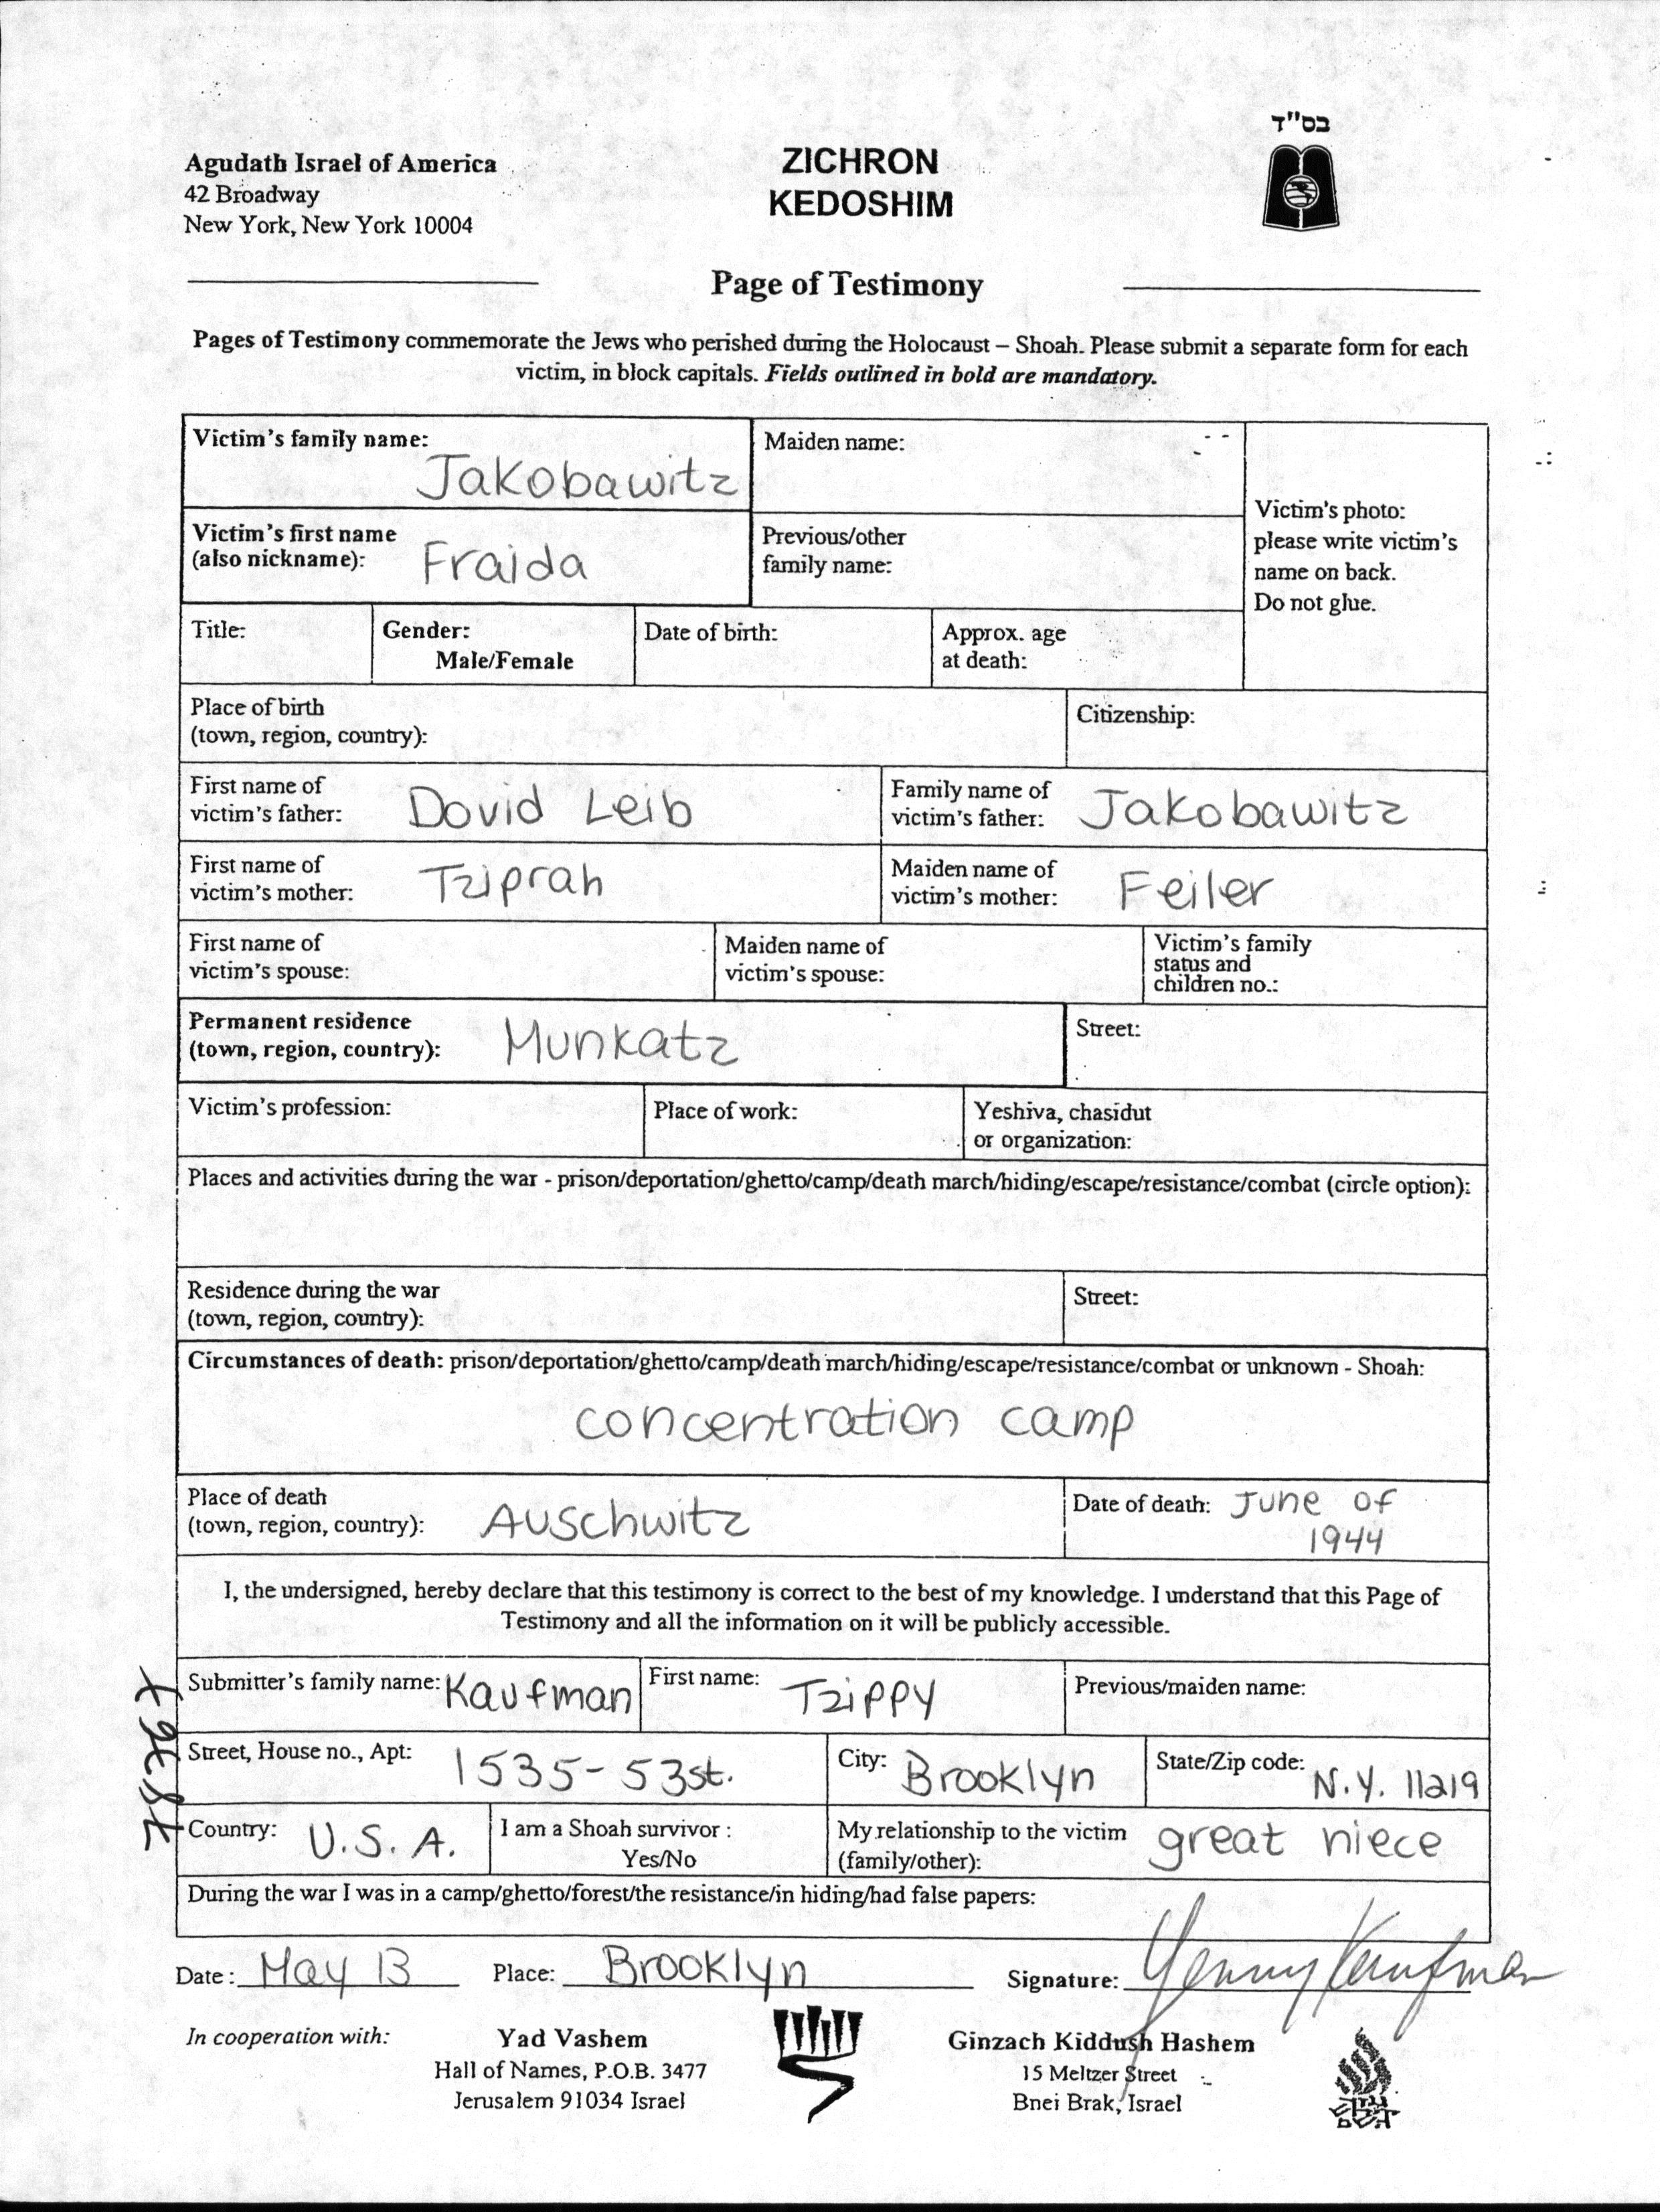 בס"ד
Agudath Israel of America
42 Broadway
New York, New York 10004
ZICHRON
KEDOSHIM
Page of Testimony
Pages of Testimony commemorate the Jews who perished during the Holocaust – Shoah. Please submit a separate form for each
victim, in block capitals. Fields outlined in bold are mandatory.
Victim's family name:
Jakobawitz
Maiden name:
Victim's photo:
please write victim's
name on back.
Do not glue.
Victim's first name
(also nickname): Fraida
Previous/other
family name:
Title:
Gender:
Male/Female
Date of birth:
Approx. age
at death:
Place of birth
(town, region, country):
Citizenship:
First name of
victim's father: Dovid Leib
Family name of
victim's father: Jakobawitz
First name of
victim's mother: Tziprah
Maiden name of
victim's mother: Feiler
First name of
victim's spouse:
Maiden name of
victim's spouse:
Victim's family
status and
children no.:
Permanent residence
(town, region, country): Munkatz
Street:
Victim's profession:
Place of work:
Yeshiva, chasidut
or organization:
Places and activities during the war - prison/deportation/ghetto/camp/death march/hiding/escape/resistance/combat (circle option):
Residence during the war
(town, region, country):
Street:
Circumstances of death: prison/deportation/ghetto/camp/death march/hiding/escape/resistance/combat or unknown - Shoah:
concentration camp
Place of death
(town, region, country): Auschwitz
Date of death: June of
1944
I, the undersigned, hereby declare that this testimony is correct to the best of my knowledge. I understand that this Page of
Testimony and all the information on it will be publicly accessible.
Submitter's family name: Kaufman
First name: Tzippy
Previous/maiden name:
Street, House no., Apt: 1535-53st.
City: Brooklyn
State/Zip code: N.Y. 11219
Country: U.S.A.
I am a Shoah survivor :
Yes/No
My relationship to the victim
(family/other): great niece
During the war I was in a camp/ghetto/forest/the resistance/in hiding/had false papers:
Date: May 13
Place: Brooklyn
Signature: Yenny Kaufman
In cooperation with:
Yad Vashem
Hall of Names, P.O.B. 3477
Jerusalem 91034 Israel
Ginzach Kiddush Hashem
15 Meltzer Street
Bnei Brak, Israel